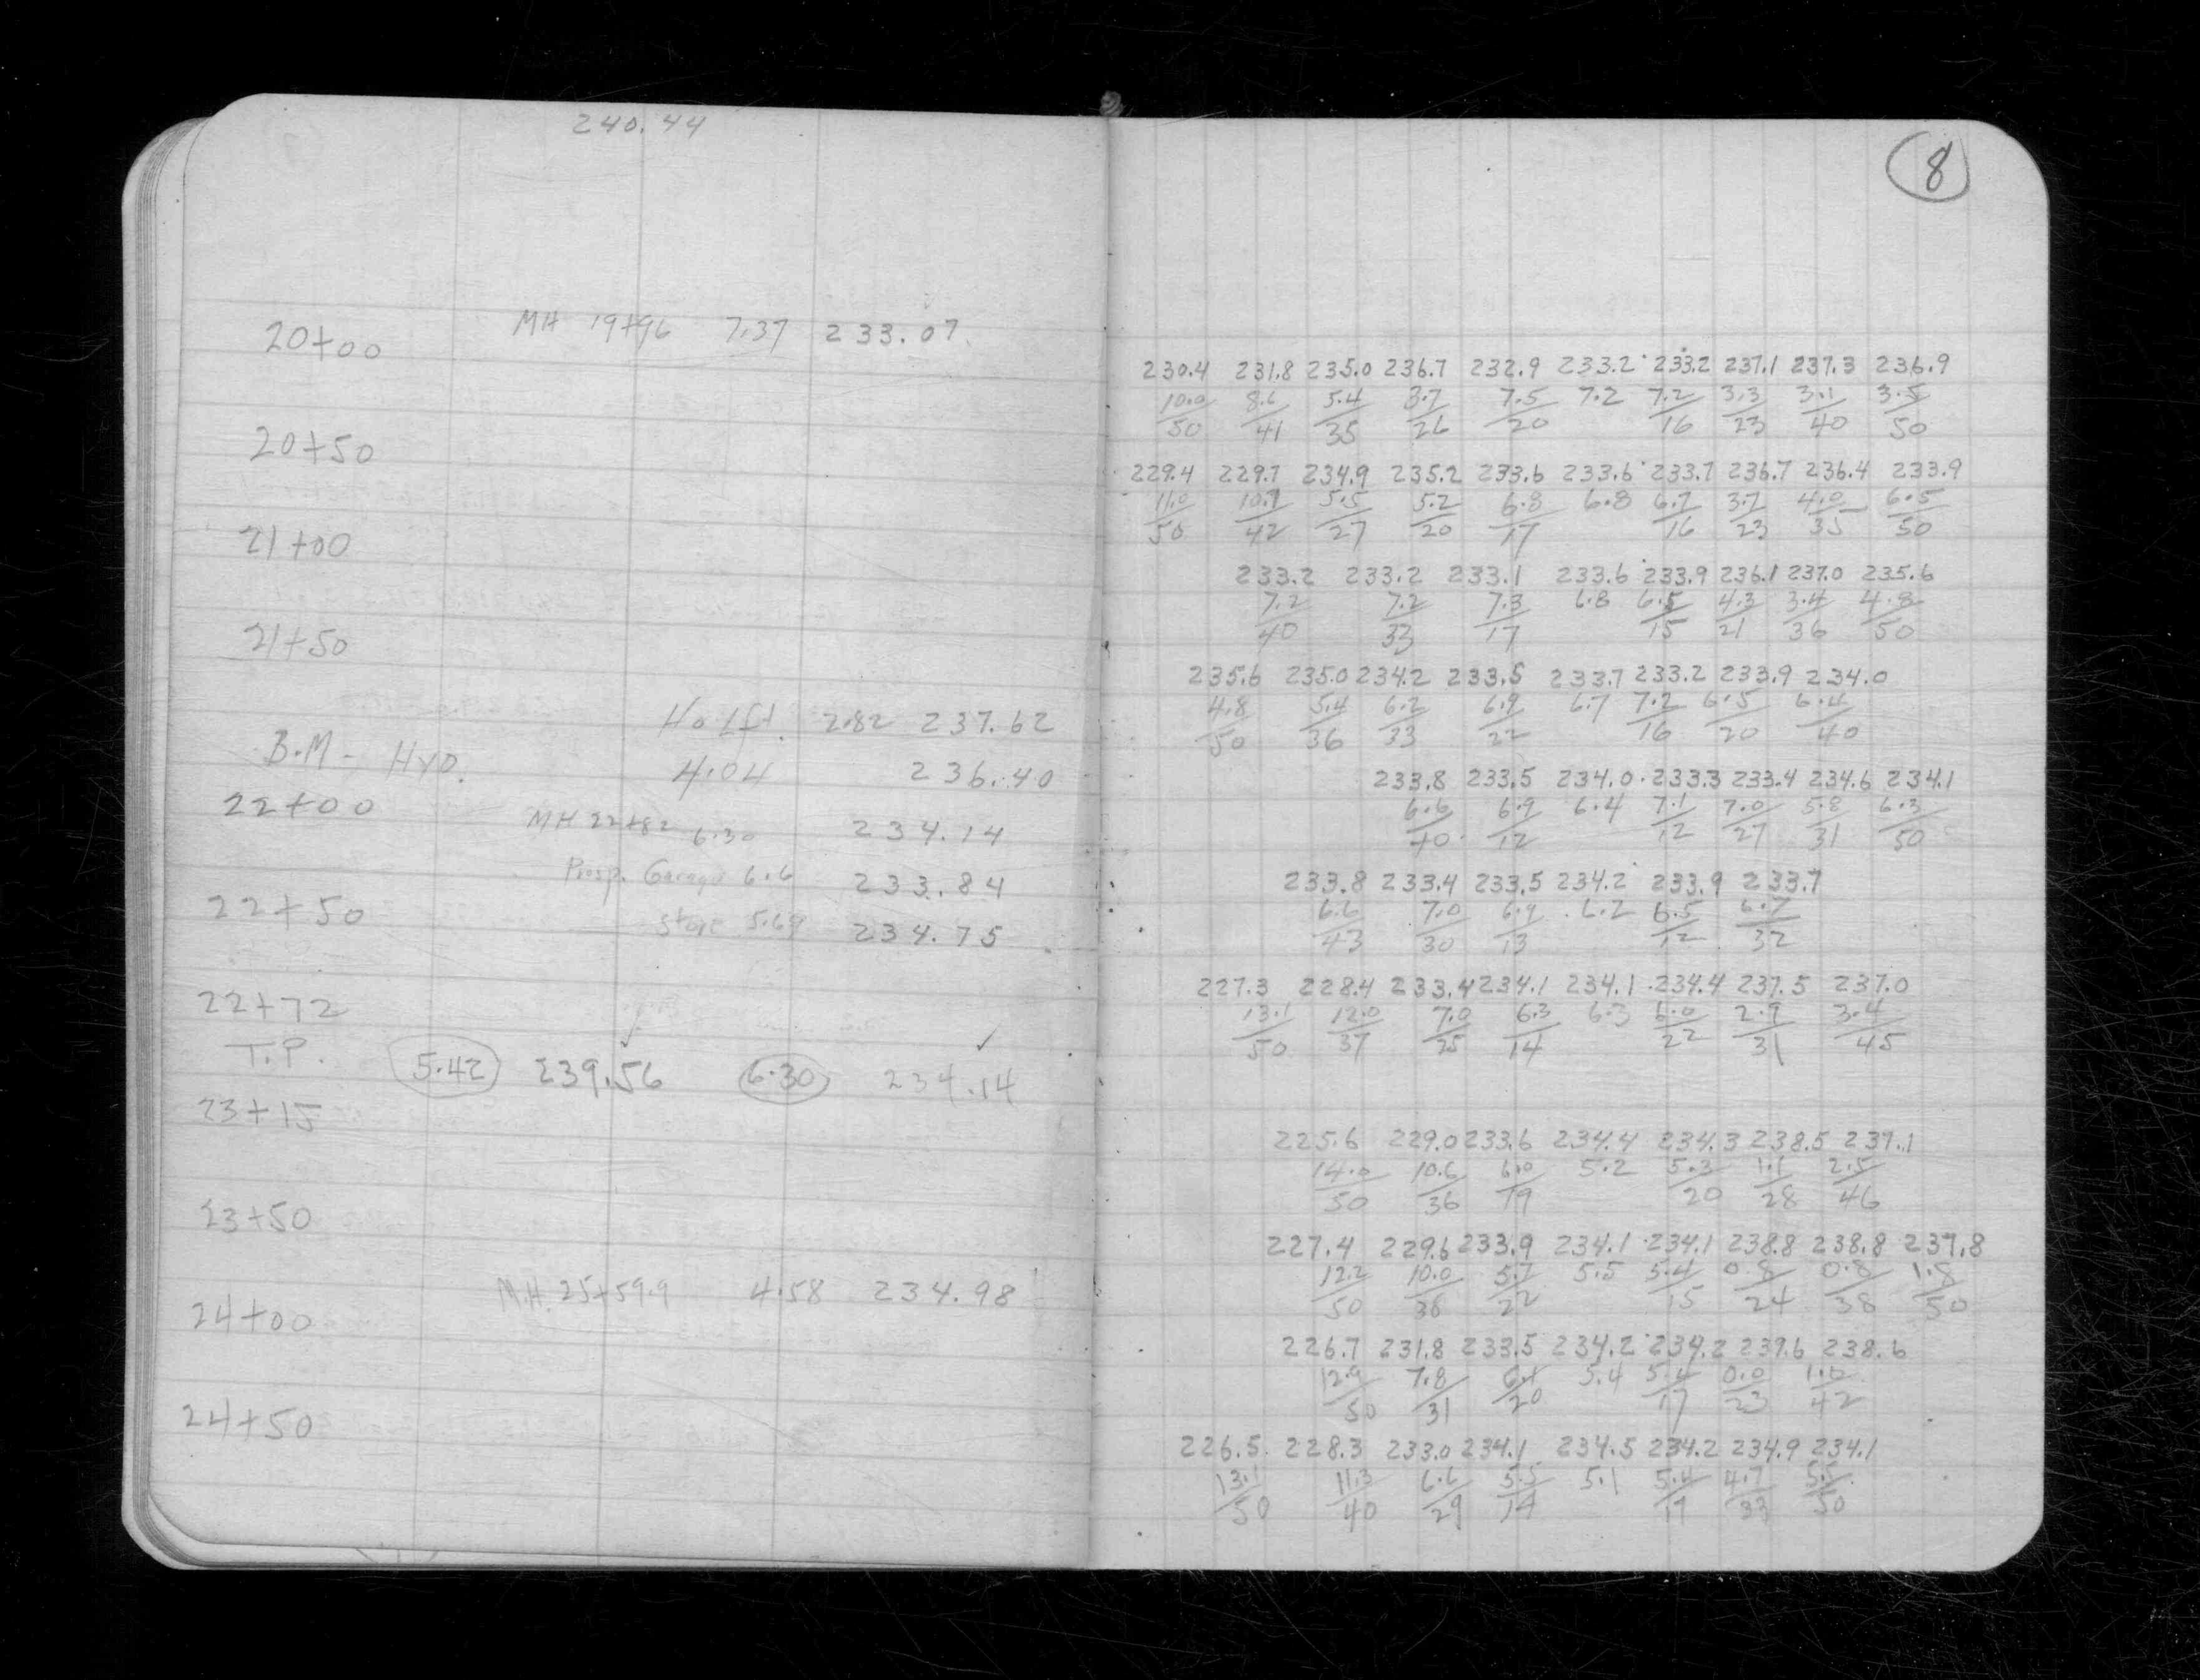 240.44
20+00 MH 19+96 7.37 233.07
20+50
21+00
21+50
Ho Lft. 2.82 237.62
B.M - HYD. 4.04 236.40
22+00 MH 22+82 6.30 234.14
Prosp. Garage 6.6 233.84
22+50 Store 5.69 234.75
22+72
T.P. 5.42 239.56 6.30 234.14
23+15
23+50
24+00 M.H. 25+59.9 4.58 234.98
24+50
8
230.4 231.8 235.0 236.7 232.9 233.2 233.2 237.1 237.3 236.9
10.0 8.6 5.4 3.7 7.5 7.2 7.2 3.3 3.1 3.5
50 41 35 26 20 16 23 40 50
229.4 229.7 234.9 235.2 233.6 233.6 233.7 236.7 236.4 233.9
11.0 10.7 5.5 5.2 6.8 6.8 6.7 3.7 4.0 6.5
50 42 27 20 17 16 23 35 50
233.2 233.2 233.1 233.6 233.9 236.1 237.0 235.6
7.2 7.2 7.3 6.8 6.5 4.3 3.4 4.8
40 33 17 15 21 36 50
235.6 235.0 234.2 233.5 233.7 233.2 233.9 234.0
4.8 5.4 6.2 6.9 6.7 7.2 6.5 6.4
50 36 33 22 16 20 40
233.8 233.5 234.0 233.3 233.4 234.6 234.1
6.6 6.9 6.4 7.1 7.0 5.8 6.3
40 12 12 27 31 50
233.8 233.4 233.5 234.2 233.9 233.7
6.6 7.0 6.9 6.2 6.5 6.7
43 30 13 12 32
227.3 228.4 233.4 234.1 234.1 234.4 237.5 237.0
13.1 12.0 7.0 6.3 6.3 6.0 2.9 3.4
50 37 25 14 22 31 45
225.6 229.0 233.6 234.4 234.3 238.5 237.1
14.0 10.6 6.0 5.2 5.3 1.1 2.5
50 36 19 20 28 46
227.4 229.6 233.9 234.1 234.1 238.8 238.8 237.8
12.2 10.0 5.7 5.5 5.4 0.8 0.8 1.8
50 36 22 15 24 38 50
226.7 231.8 233.5 234.2 234.2 239.6 238.6
12.9 7.8 6.1 5.4 5.4 0.0 1.0
50 31 20 17 23 42
226.5 228.3 233.0 234.1 234.5 234.2 234.9 234.1
13.1 11.3 6.6 5.5 5.1 5.4 4.7 5.5
50 40 29 14 19 33 50